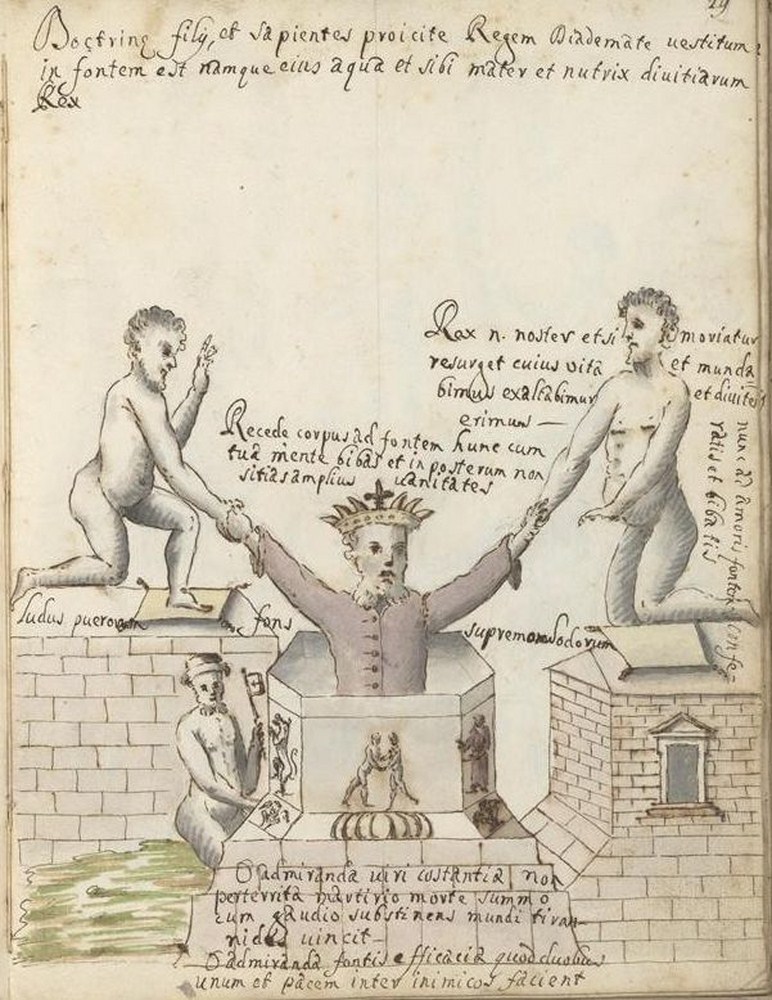 29
Doctrine filij, et sapientes proicite Regem Diademate uestitum
in fontem est namque eius aqua et sibi mater et nutrix diuitiarum
Rex
Rex n. noster etsi moriatur
resurget cuius uita et munda
bimus exaltabimur et diuites
erimus —
nunc ad amoris fontem confe=
ratis et bibatis
Recede corpus ad fontem hunc cum
tua mente bibas et in posterum non
sitias amplius uanitates
ludus puerorum fons supremorum
O admiranda uiri costantia non
perterrita martirio morte summo
cum gaudio substinens mundi tiran-
nides uincit —
O admiranda fontis efficacia quod duobus
unum et pacem inter inimicos facient